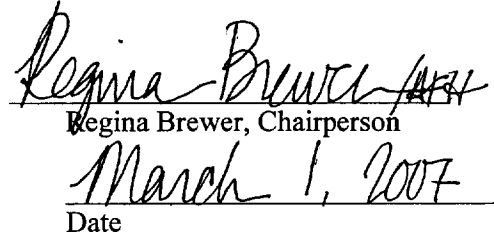 Regina Brewer /AFH
Regina Brewer, Chairperson
March 1, 2007
Date